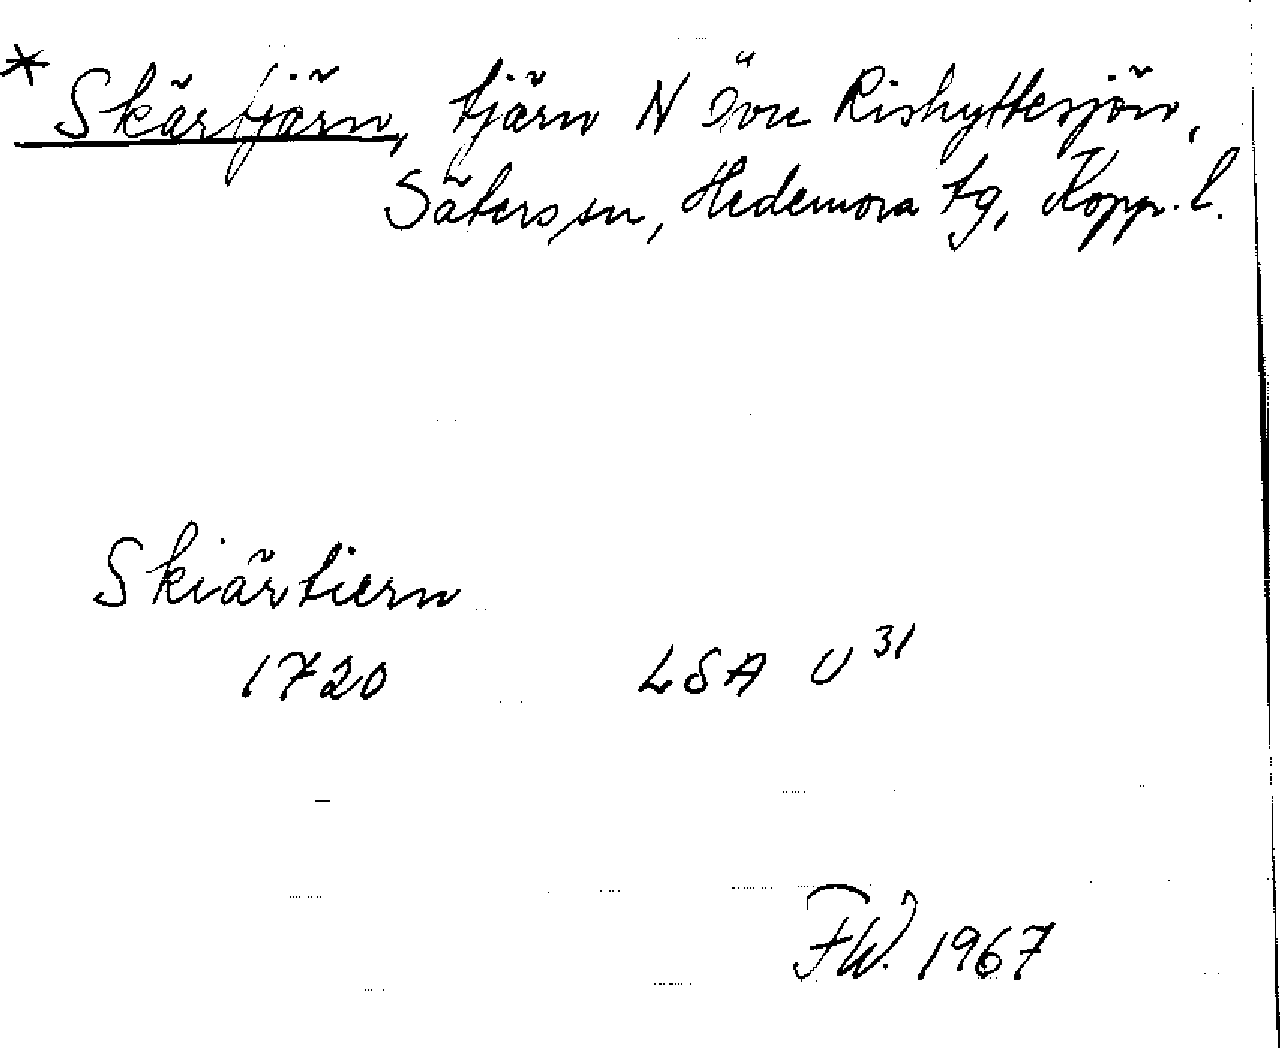 * Skärtjärn, tjärn N Övre Rishyttesjön,
Säters sn, Hedemora tg, Kopp. l.
Skiärtiern
1720 LSA U 31
FW. 1967